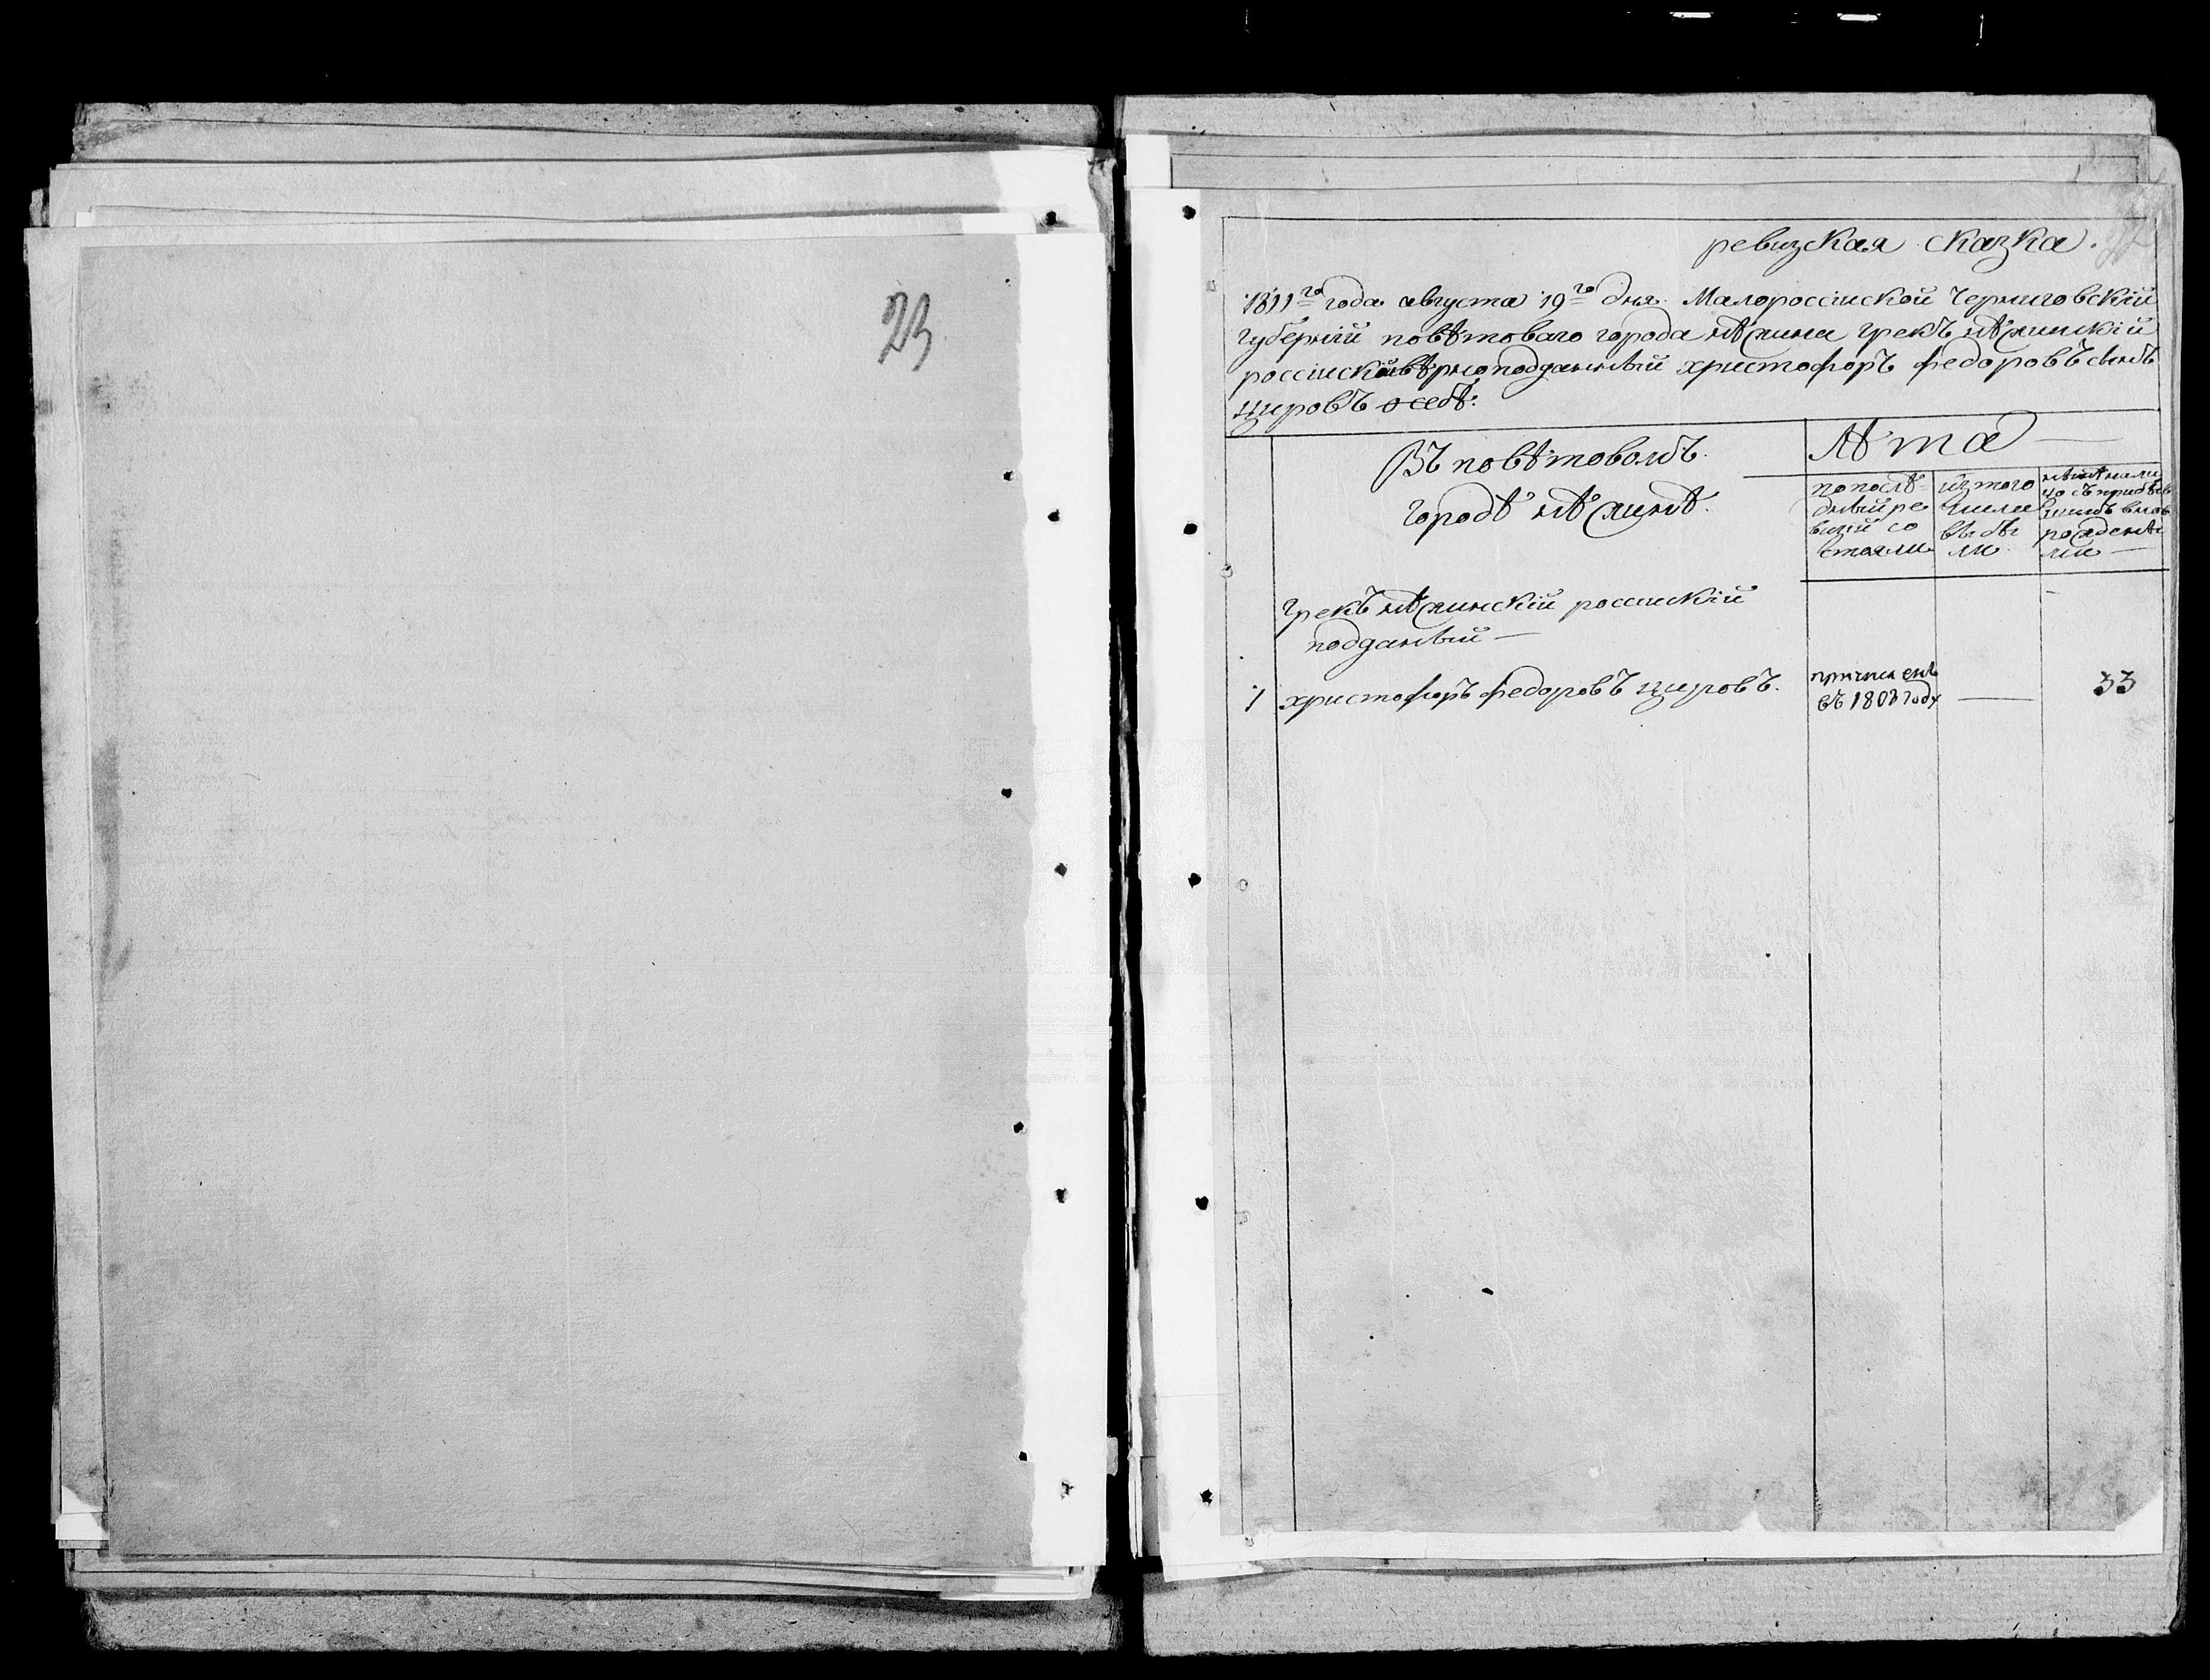 23
ревизская сказка.
1811го года августа 19го дня Малороссiиской Черниговскiй
губернiй повѣтоваго города нѣжина грекъ нѣжинскiй
россiискiй вѣрноподданный христофоръ федоровъ сынъ
о себѣ:
Въ повѣтовомъ
городѣ нѣжинѣ.
Лѣта
по послѣ-
дный ре
визiй со
стояли
изъ того
числа
выбы
ли
нынѣ нали
цо съ прибыв
шимъ внов
рожденны
ми
Грекъ нѣжинскiй россискiй
подданый
1 христофоръ федоровъ
причисленъ
въ 1803 году
33